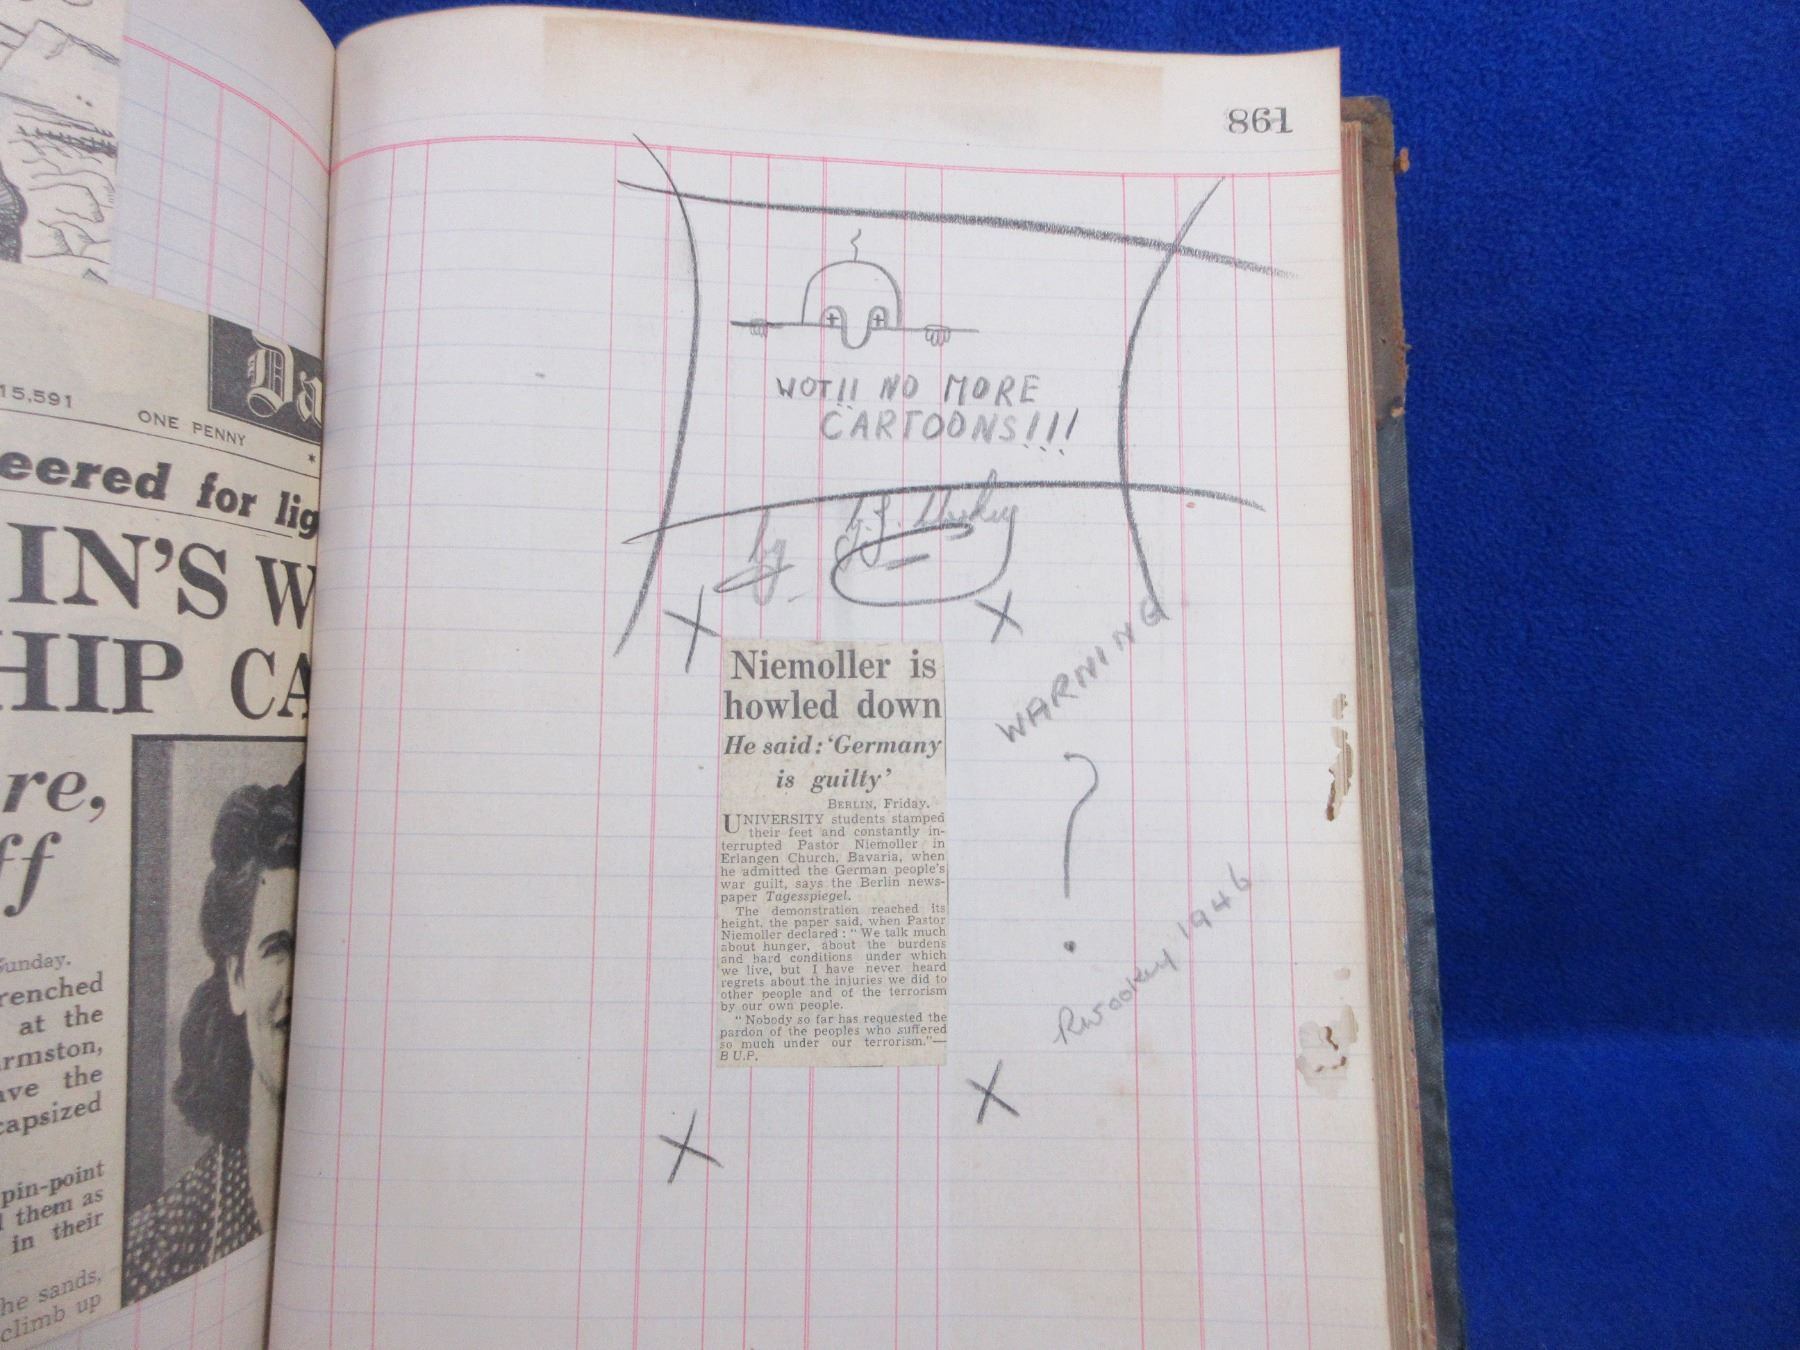 15,591
ONE PENNY
Da
*
eered for lig
IN'S W
HIP CA
re,
ff
Sunday.
renched
at the
rmston,
ave the
capsized
pin-point
them as
in their
he sands,
climb up
861
WOT!! NO MORE
CARTOONS!!!
by
X X
Niemoller is
howled down
He said: 'Germany
is guilty'
BERLIN, Friday.
UNIVERSITY students stamped
their feet and constantly in-
terrupted Pastor Niemoller in
Erlangen Church, Bavaria, when
he admitted the German people's
war guilt, says the Berlin news-
paper Tagesspiegel.
The demonstration reached its
height, the paper said, when Pastor
Niemoller declared: "We talk much
about hunger, about the burdens
and hard conditions under which
we live, but I have never heard
regrets about the injuries we did to
other people and of the terrorism
by our own people.
"Nobody so far has requested the
pardon of the peoples who suffered
so much under our terrorism."—
B U.P.
WARNING
?
RWooley 1946
X X